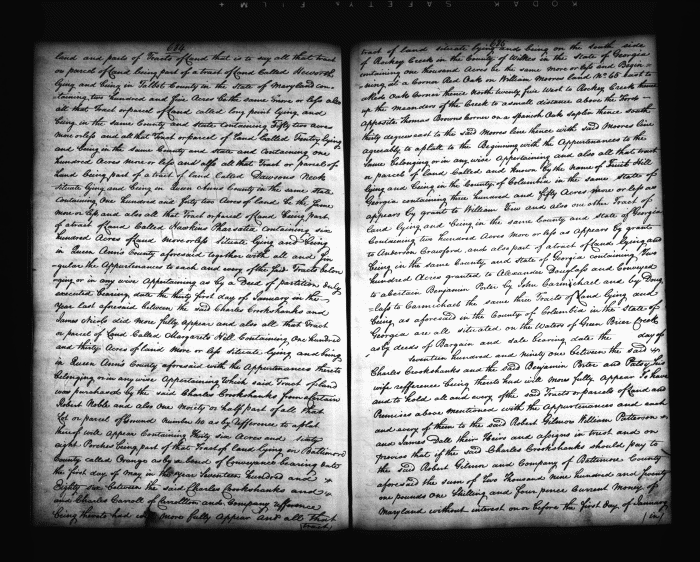 KODAK SAFETY FILM +
614
land and parts of Tracts of Land that is to say all that tract
or parcel of Land being part of a tract of Land Called
Lying and being in Talbot County in the State of Maryland con-
taining two hundred and five Acres be the same more or less also
all that tract or parcel of land called long point lying and
being in the same County and state Containing Fifty two acres
more or less and all that Tract or parcel of Land Called Trinity lying
and being in the same County and state and Containing one
hundred Acres more or less and also all that Tract or parcel of
Land being part of a tract of land Called Dawsons Neck
Situate lying and being in Queen Anns County in the same state
Containing One hundred and forty two Acres of land be the same
more or less and also all that Tract or parcel of Land being part
of a tract of Land Called Hawkins Pharsalia Containing six
hundred Acres of Land more or less Situate lying and being
in Queen Ann's County aforesaid together with all and
=gular the Appurtenances to each and every of the said Tracts belon
=ging or in any wise Appertaining as by a Deed of partition duly
executed bearing date the thirty first day of January in the
year last aforesaid between the said Charles Crookshanks and
James Nicols did more fully appear and also all that Tract
or parcel of Land Called Margarets Hill Containing One hundred
and thirty Acres of land more or less situate lying and being
in Queen Ann's County aforesaid with the Appurtenances thereto
belonging or in any wise Appertaining which said Tract of land
was purchased by the said Charles Crookshanks from a Certain
Robert Noble and also one Moiety or half part of all that
Lot or parcel of Ground number as by refference to a plat
thereof will appear Containing thirty six Acres and sixty
eight Perches being part of that Tract of land lying in Baltimore
County called Orange as by a deed of Conveyance bearing date
the first day of may in the year Seventeen hundred and
Eighty six between the said Charles Crookshanks and
and Charles Carroll of Carrollton and Company refference
being thereto had will more fully Appear and all that
(tract)
tract of land situate lying and being on the south side
of Rockey Creek in the County of Wilkes in the State of Georgia
containing one thousand Acres be the same more or less and Begin
=ning at a Corner Red Oak on William Moores land No. 68 East to
a Red Oak Corner thence North twenty five West to Rockey Creek thence
up the meanders of the Creek to a small distance above the Ford
opposite Thomas Browns Corner on a Spanish Oak saplin thence South
thirty degrees east to the said Moores line thence with said Moores line
agreeably to a plat to the Beginning with the Appurtenances to the
same Belonging or in any wise Appertaining and also all that tract
or parcel of land Called and known by the name of Fruit Hill
lying and being in the County of Columbia in the same state of
Georgia containing three hundred and fifty Acres more or less as
appears by grant to William and also one other Tract of
land lying and being in the same County and state of Georgia
Containing two hundred Acres more or less as appears by grant
to Anderson Crawford and also part of a tract of Land lying and
being in the same County and state of Georgia containing Two
hundred Acres granted to Alexander Douglass and Conveyed
to a certain Benjamin Porter by John Carmichael and by Doug
=lass to Carmichael the same three Tracts of Land lying and
being as aforesaid in the County of Columbia in the State of
Georgia are all situated on the Waters of Green Brier Creek
as by deeds of Bargain and sale bearing date the day of
seventeen hundred and ninety one between the said
Charles Crookshanks and the said Benjamin Porter and Patsy his
wife refference being thereto had will more fully appear To have
and to hold all and every of the said Tracts or parcels of Land and
Premises above mentioned with the Appurtenances and each
and every of them to the said Robert Gilmor William Patterson
and James Dall their Heirs and assigns in trust and on
proviso that if the said Charles Crookshanks should pay to
the said Robert Gilmor and Company of Baltimore County
aforesaid the sum of Two thousand Nine hundred and seventy
one pounds One Shilling and four pence Current Money of
Maryland without interest on or before the first day of January
(in)